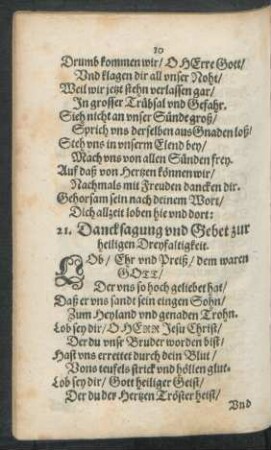 10
Drumb kommen wir/ O HErre Gott/
Vnd klagen dir all vnser Noht/
Weil wir jetzt stehn verlassen gar/
In grosser Trübsal vnd Gefahr.
Sieh nicht an vnser Sünde groß/
Sprich vns derselben aus Gnaden loß/
Steh vns in vnserm Elend bey/
Mach vns von allen Sünden frey.
Auf daß von Hertzen können wir/
Nachmals mit Freuden dancken dir.
Gehorsam sein nach deinem Wort/
Dich allzeit loben hie vnd dort:
21. Dancksagung vnd Gebet zur
heiligen Dreyfaltigkeit.
LOb/ Ehr vnd Preiß/ dem waren
GOTT/
Der vns so hoch geliebet hat/
Daß er vns sandt sein eingen Sohn/
Zum Heyland vnd genaden Trohn.
Lob sey dir/ O HERR Jesu Christ/
Der du vnse Bruder worden bist/
Hast vns erreitet durch dein Blut/
Vons teufels strick vnd höllen glut.
Lob sey dir/ Gott heiliger Geist/
Der du der Hertzen Tröster heist/
Vnd